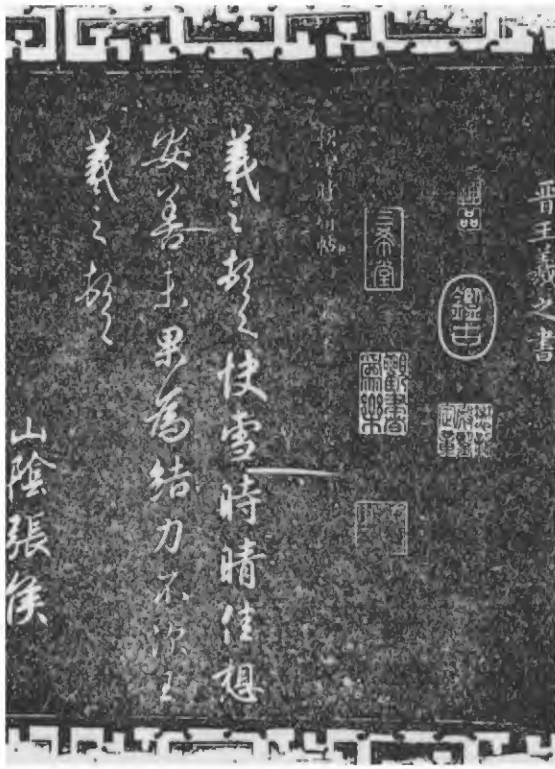 晉王羲之書
鑑古
三希堂
觀書為樂
羲之頓首快雪時晴佳想
安善未果為結力不次王
羲之頓首
山陰張侯